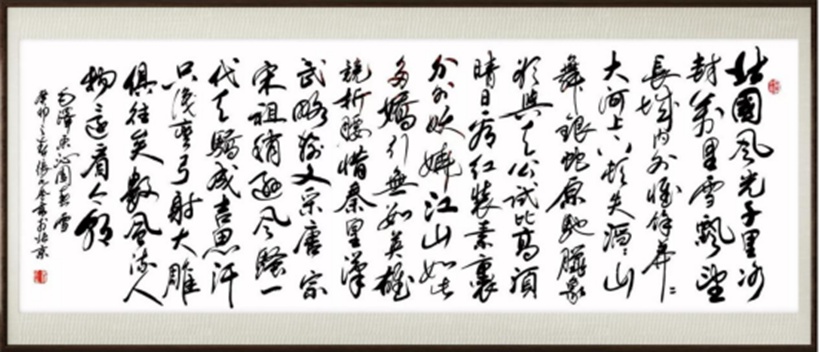 北國風光千里冰
封萬里雪飄望
長城內外惟餘莽々
大河上下頓失滔々山
舞銀蛇原馳臘象
欲與天公試比高須
晴日看紅裝素裹
分外妖嬈江山如此
多嬌引無數英雄
競折腰惜秦皇漢
武略輸文采唐宗
宋祖稍遜風騷一
代天驕成吉思汗
只識彎弓射大雕
俱往矣數風流人
物還看今朝
毛澤東沁園春雪
癸卯之春書於北京